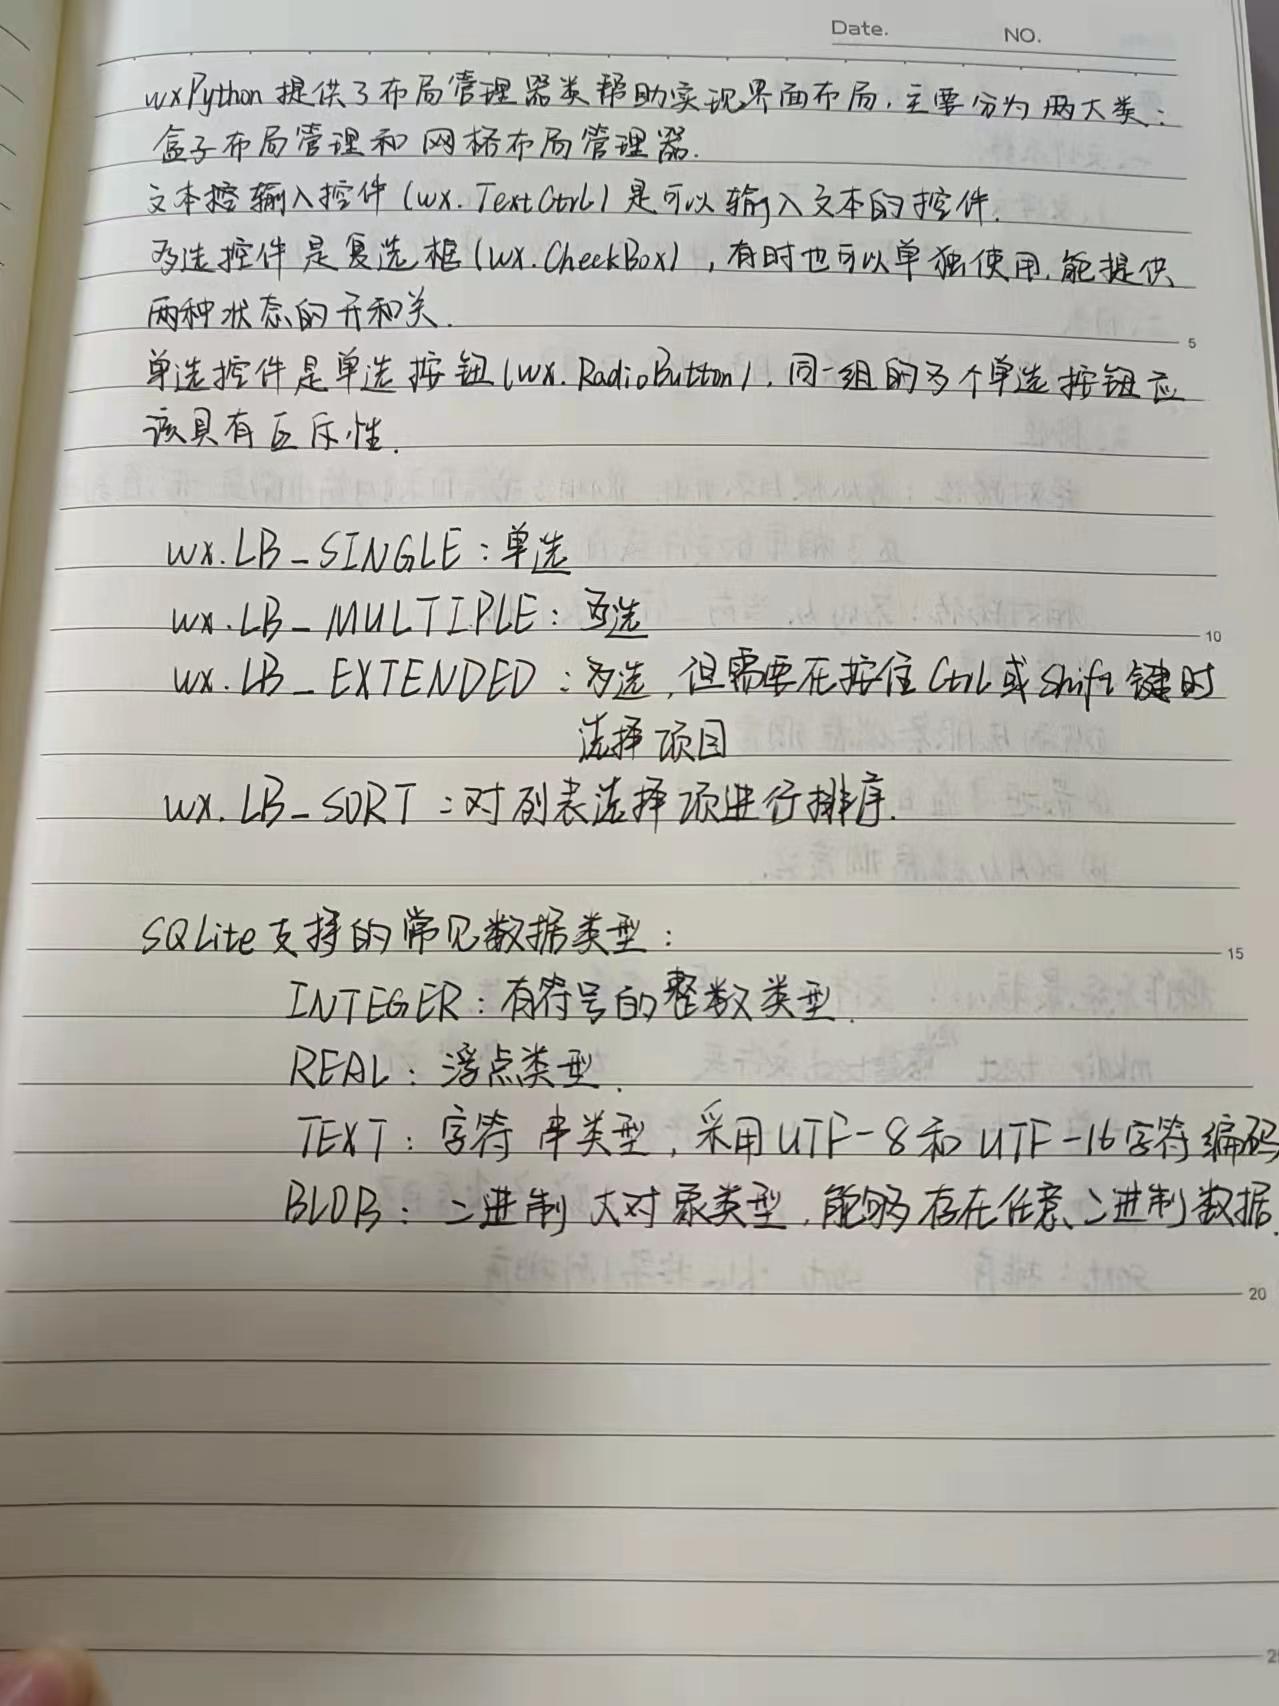 Date. NO.
wxPython提供了布局管理器类帮助实现界面布局,主要分为两大类:
盒子布局管理和网格布局管理器.
文本控输入控件(wx.TextCtrl)是可以输入文本的控件.
多选控件是复选框(wx.CheckBox),有时也可以单独使用,能提供
两种状态的开和关.
5
单选控件是单选按钮(wx.RadioButton),同一组的多个单选按钮应
该具有互斥性.
wx.LB_SINGLE:单选
wx.LB_MULTIPLE:多选
10
wx.LB_EXTENDED:多选,但需要在按住Ctrl或Shift键时
选择项目
wx.LB_SORT:对列表选择项进行排序.
SQLite支持的常见数据类型:
15
INTEGER:有符号的整数类型.
REAL:浮点类型.
TEXT:字符串类型,采用UTF-8和UTF-16字符编码
BLOB:二进制大对象类型,能够存在任意二进制数据.
20